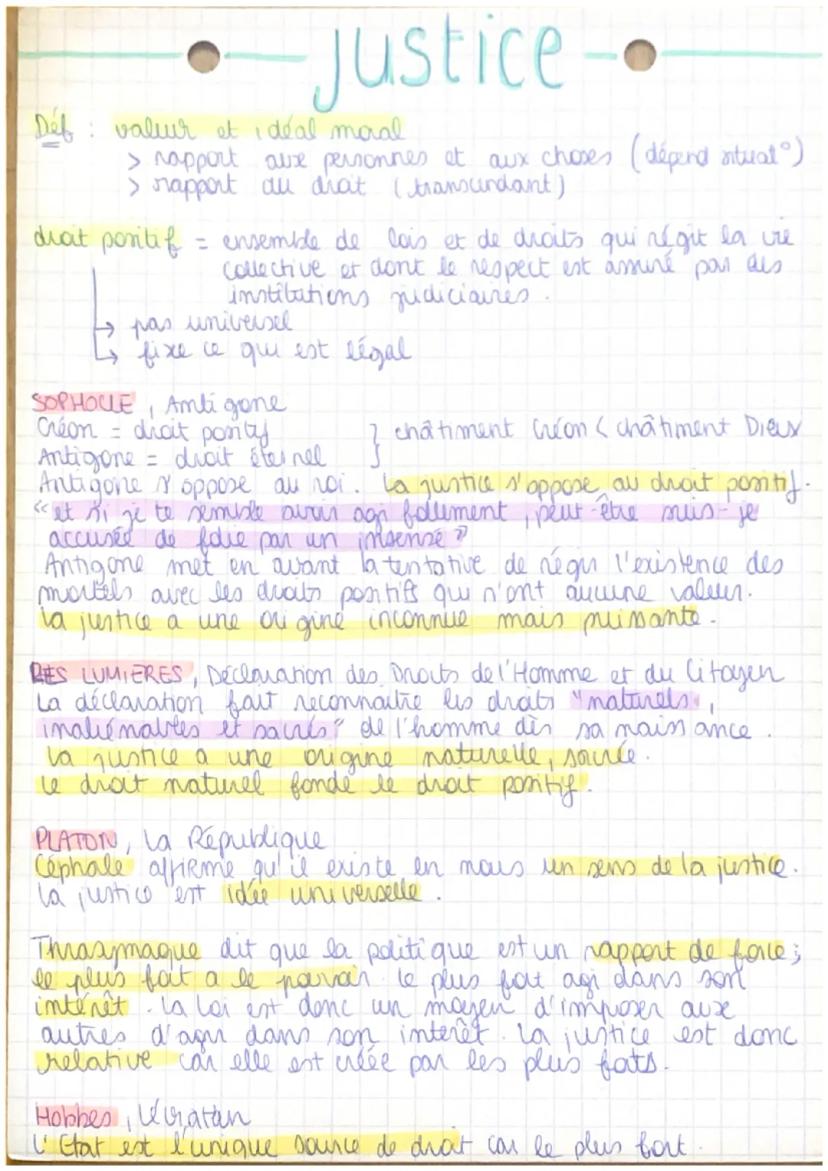 justice
Déf : valeur et idéal moral
> rapport aux personnes et aux choses (dépend situat°)
> rapport au droit (transcendant)
droit positif = ensemble de lois et de droits qui régit la vie
collective et dont le respect est assuré par des
institutions judiciaires.
↳ pas universel
↳ fixe ce qui est légal
SOPHOCLE, Antigone
Créon = droit positif } châtiment Créon < châtiment Dieux
Antigone = droit éternel
Antigone s'oppose au roi. La justice s'oppose au droit positif.
"et si je te semble avoir agi follement, peut-être suis-je
accusée de folie par un insensé"
Antigone met en avant la tentative de régir l'existence des
mortels avec les droits positifs qui n'ont aucune valeur.
La justice a une origine inconnue mais puissante.
LES LUMIERES, Déclaration des Droits de l'Homme et du Citoyen
La déclaration fait reconnaitre les droits "naturels,
inaliénables et sacrés" de l'homme dès sa naissance.
La justice a une origine naturelle, sacrée.
Le droit naturel fonde le droit positif.
PLATON, La République
Céphale affirme qu'il existe en nous un sens de la justice.
La justice est idée universelle.
Thrasymaque dit que la politique est un rapport de force;
le plus fort a le pouvoir. Le plus fort agi dans son
intérêt. La loi est donc un moyen d'imposer aux
autres d'agir dans son intérêt. La justice est donc
relative car elle est créée par les plus forts.
Hobbes, Léviatan
L'Etat est l'unique source de droit car le plus fort.